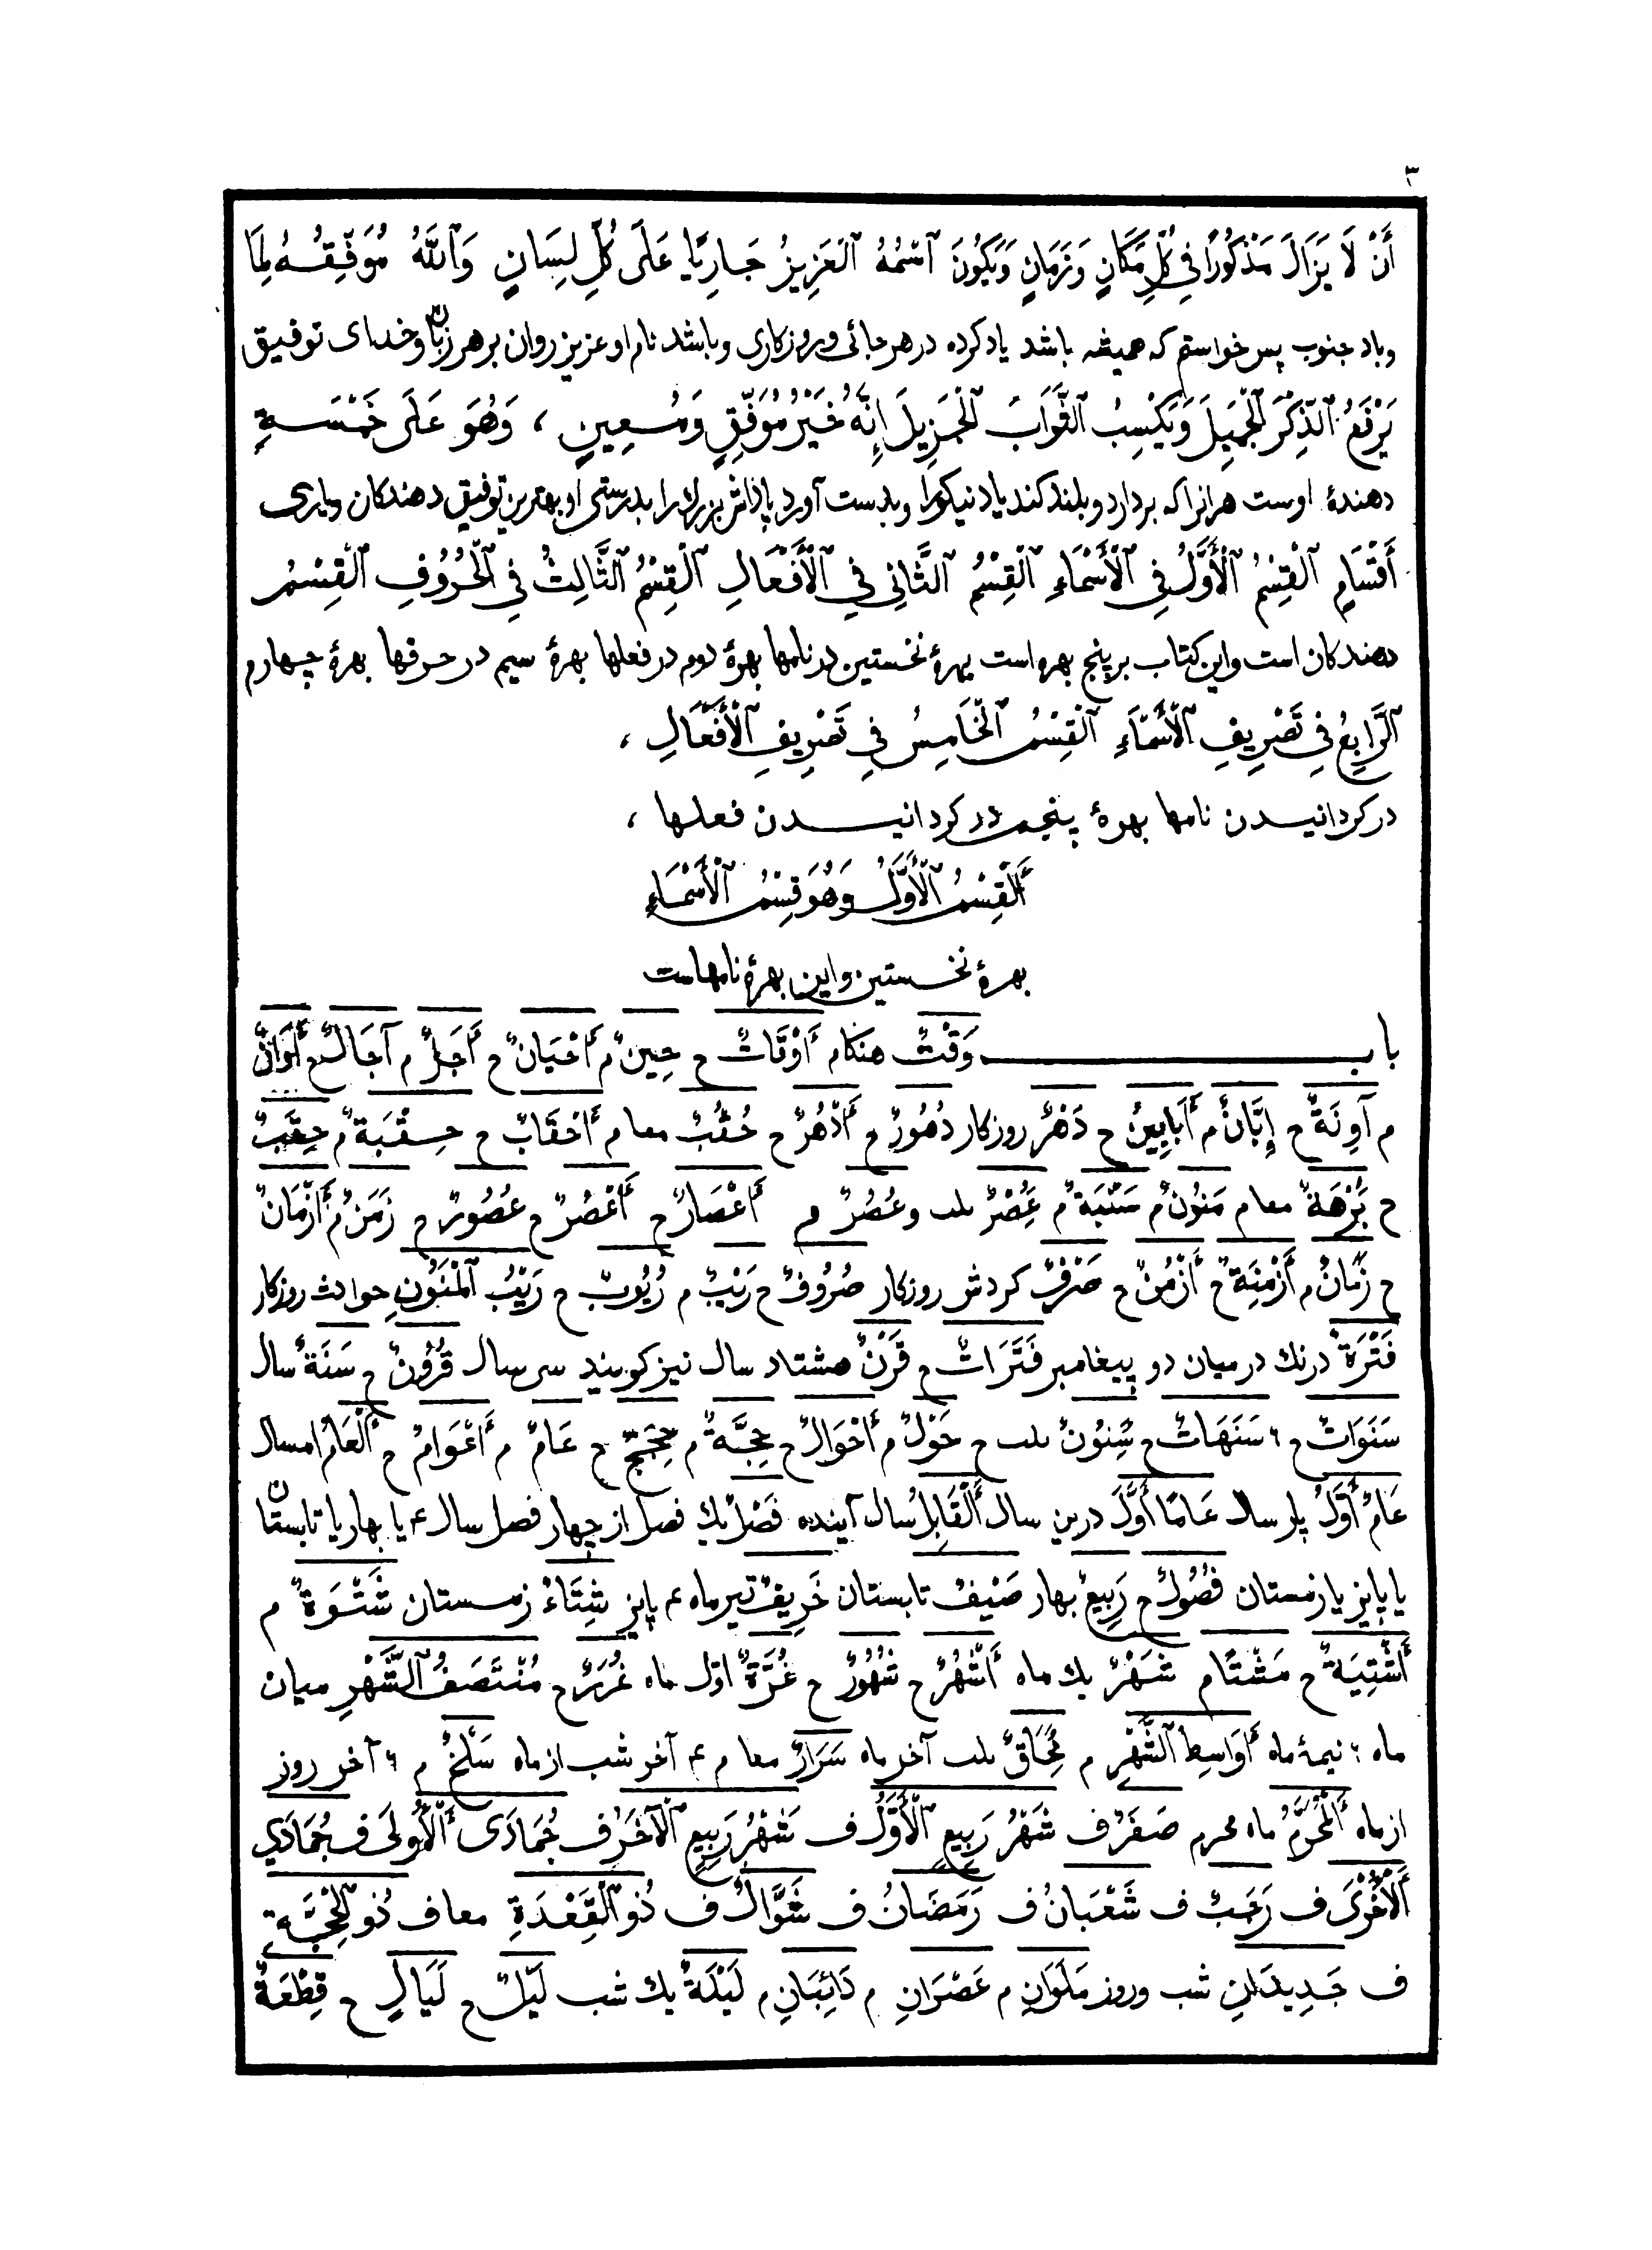 ٣
أَنْ لَا يَزَالَ مَذْكُورًا فِي كُلِّ مَكَانٍ وَزَمَانٍ وَيَكُونَ ٱسْمُهُ ٱلْعَزِيزُ جَارِيًا عَلَى كُلِّ لِسَانٍ وَٱللَّهُ مُوَفِّقُهُ لِمَا
وباد جنوب پس خواستم که همیشه باشد یاد کرده در هر جائی وروزکاری وباشد نام او عزیز روان بر هر زبان وخدای توفیق
يَرْفَعُ ٱلذِّكْرَ ٱلْجَمِيلَ وَيَكْسِبُ ٱلثَّوَابَ ٱلْجَزِيلَ إِنَّهُ خَيْرُ مُوَفِّقٍ وَمُعِينٍ ، وَهُوَ عَلَى خَمْسَةِ
دهندهٔ اوست هر انرا که بردارد وبلند کند یاد نیکورا وبدست آورد پاداش بزرك را بدرستی او بهترین توفیق دهندکان ویاری
أَقْسَامٍ ٱلْقِسْمُ ٱلْأَوَّلُ فِي ٱلْأَسْمَاءِ ٱلْقِسْمُ ٱلثَّانِي فِي ٱلْأَفْعَالِ ٱلْقِسْمُ ٱلثَّالِثُ فِي ٱلْحُرُوفِ ٱلْقِسْمُ
دهندکان است واین کتاب بر پنج بهره است بهرهٔ نخستین در نامها بهرهٔ دوم در فعلها بهرهٔ سیم در حرفها بهرهٔ چهارم
ٱلرَّابِعُ فِي تَصْرِيفِ ٱلْأَسْمَاءِ ٱلْقِسْمُ ٱلْخَامِسُ فِي تَصْرِيفِ ٱلْأَفْعَالِ ،
در کردانیدن نامها بهرهٔ پنجم در کردانیدن فعلها ،
أَلْقِسْمُ ٱلْأَوَّلُ وَهُوَ قِسْمُ ٱلْأَسْمَاءِ
بهرهٔ نخستین واین بهرهٔ نامهاست
باب وَقْتٌ هنكام أَوْقَاتٌ ح حِينٌ م أَحْيَانٌ ح أَجَلٌ م آجَالٌ ح أَوَانٌ
م آوِنَةٌ ح إِبَّانٌ م أَبَابِينُ ح دَهْرٌ روزكار دُهُورٌ ح أَدْهُرٌ ح حُقُبٌ معا م أَحْقَابٌ ح حِقْبَةٌ م حِقَبٌ
ح بُرْهَةٌ معا م مَنُونٌ م سَنْبَةٌ م عِصْرٌ ىلى وعُصُرٌ م أَعْصَارٌ ح أَعْصُرٌ ح عُصُورٌ ح زَمَنٌ م أَزْمَانٌ
ح زَمَانٌ م أَزْمِنَةٌ ح أَزْمُنٌ ح صَرْفٌ كردش روزكار صُرُوفٌ ح رَيْبٌ م رُيُوبٌ ح رَيْبُ ٱلْمَنُونِ حوادث روزكار
فَتْرَةٌ درنك در میان دو پیغامبر فَتَرَاتٌ ح قَرْنٌ هشتاد سال نیز كویند سی سال قُرُونٌ ح سَنَةٌ سال
سَنَوَاتٌ ح ٩ سَنَهَاتٌ ح سِنُونٌ ىلى ح حَوْلٌ م أَحْوَالٌ ح حِجَّةٌ م حِجَجٌ ح عَامٌ م أَعْوَامٌ ح أَلْعَامُ امسال
عَامُ أَوَّلُ پار سال عَامًا أَوَّلَ درین سال أَلْقَابِلُ سال آینده فَصْلٌ یك فصل از چهار فصل سال ٤ یا بهار یا تابستان
یا پایز یا زمستان فُصُولٌ ح رَبِيعٌ بهار صَيْفٌ تابستان خَرِيفٌ تیر ماه ٤ پایز شِتَاءٌ زمستان شَتْوَةٌ م
أَشْتِيَةٌ ح مَشْتًا م شَهْرٌ یك ماه أَشْهُرٌ ح شُهُورٌ ح غُرَّةٌ اوّل ماه غُرَرٌ ح مُنْتَصَفُ ٱلشَّهْرِ میان
ماه ٩ نیمهٔ ماه أَوَاسِطُ ٱلشَّهْرِ م مُحَاقٌ ىلى آخر ماه سَرَارٌ معا م ٤ آخر شب از ماه سَلْخٌ م ٩ آخر روز
از ماه أَلْمُحَرَّمُ ماه محرم صَفَرٌ ف شَهْرُ رَبِيعٍ ٱلْأَوَّلُ ف شَهْرُ رَبِيعٍ ٱلْآخَرُ ف جُمَادَى ٱلْأُولَى ف جُمَادَى
ٱلْأُخْرَى ف رَجَبٌ ف شَعْبَانُ ف رَمَضَانُ ف شَوَّالٌ ف ذُو ٱلْقَعْدَةِ معا ف ذُو ٱلْحِجَّةِ
ف جَدِيدَانِ شب وروز مَلَوَانِ م عَصْرَانِ م دَائِبَانِ م لَيْلَةٌ یك شب لَيْلٌ ح لَيَالٍ ح قِطْعَةٌ